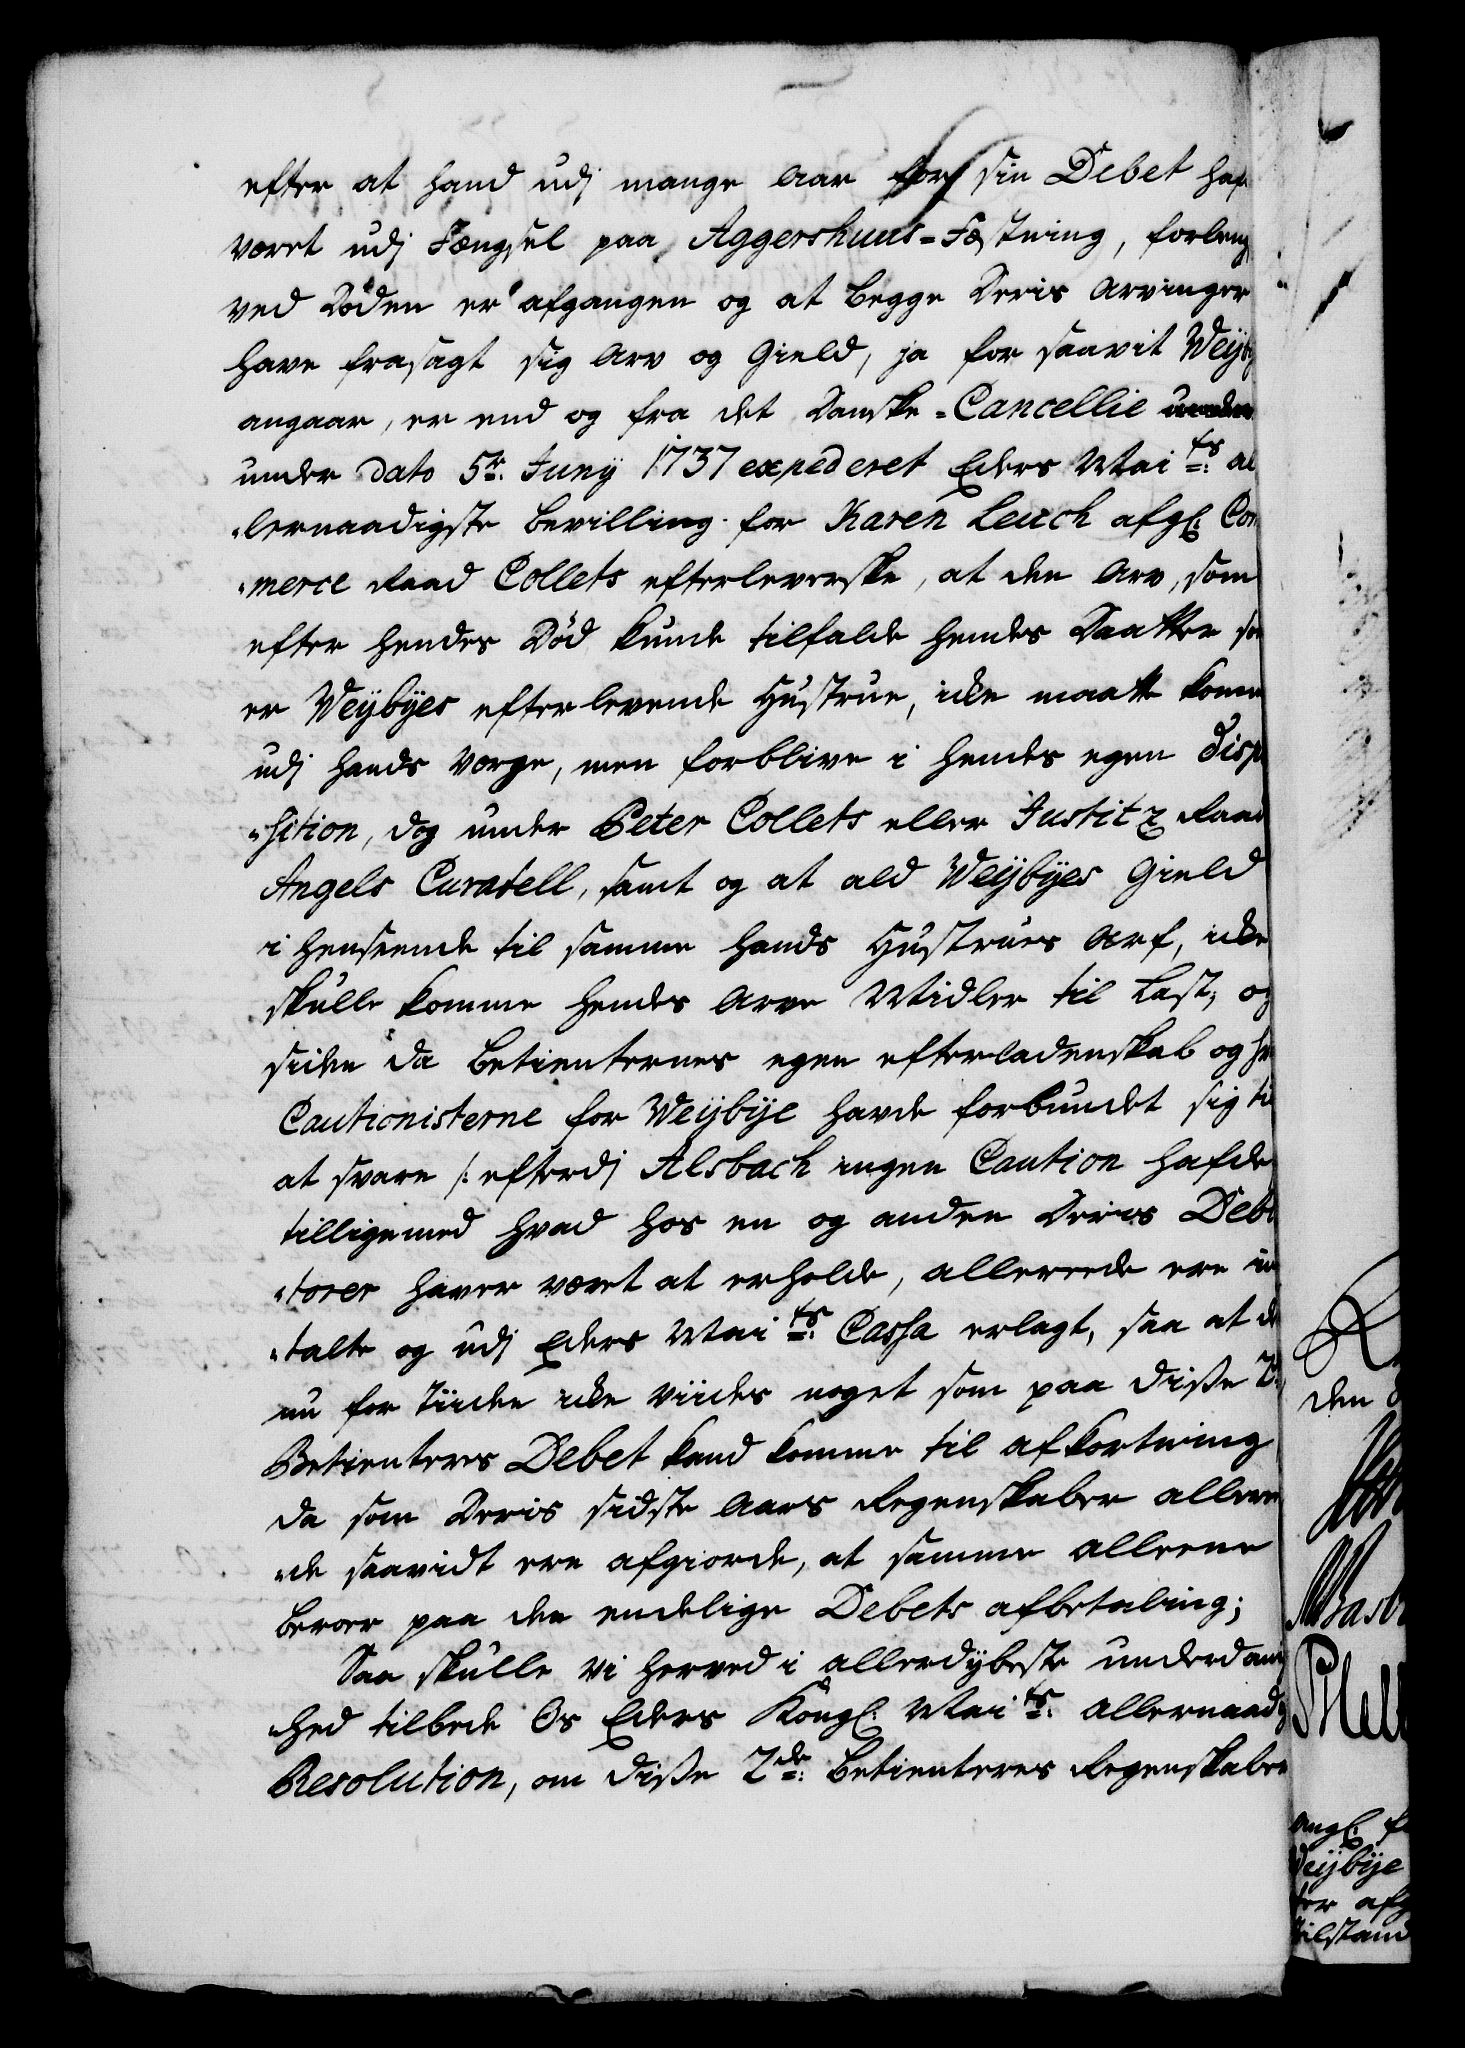 efter at hand udj mange Aar for sin Debet haf
været udj Fængsel paa Aggershuus=Fæstning, forleng
ved Døden er afgangen og at begge Deris Arvinger
have frasagt sig Arv og Gield, ja for saavit Weijb
angaar, er end og fra det Danske=Cancellie
under Dato 5te Junij 1737 expederet Eders Mai ts al
„lernaadigste bevilling for Karen Leuch afgl. Com
„merce Raad Collets efterleverske, at den Arv, som
efter hendes Død kunde tilfalde hendes Daatter so
er Weijbÿes efterlevende Hustrue, icke maatte komm
udj hands Værge, men forblive i hendes egen Disp
„sition, dog under Peter Collets eller Justitz Raad
Angels Curatell, samt og at ald Weijbÿes Gield
i henseende til samme hands Hustrues Arf, icke
skulle komme hendes Arve Midler til Last, og
siden da betienternes egen efterladenskab og h
Cautionisterne for Weijbÿe havde forbundet sig til
at svare /: efterdj Alsbach ingen Caution hafde
tilligemed hvad hos en og anden Deris Debi
„torer haver været at erholde, allereede ere in
„talte og udj Eders Mai ts Cassa erlagt, saa at d
nu for Tiiden icke viides noget som paa disse 2de
Betienteres Debet kand komme til afkortning
da som Deris sidste Aars Regenskaber allere
„de saavidt ere afgiorde, at samme alleene
beroer paa den endelige Debets afbetaling;
Saa skulle vi herved i allerdÿbeste underdanig
hed tilbede Os Eders Kongl. Mai ts allernaadig
Resolution, om disse 2de betienteres Regenskaber
den
Angl. f
Weijbÿe
ter afg
tilstand